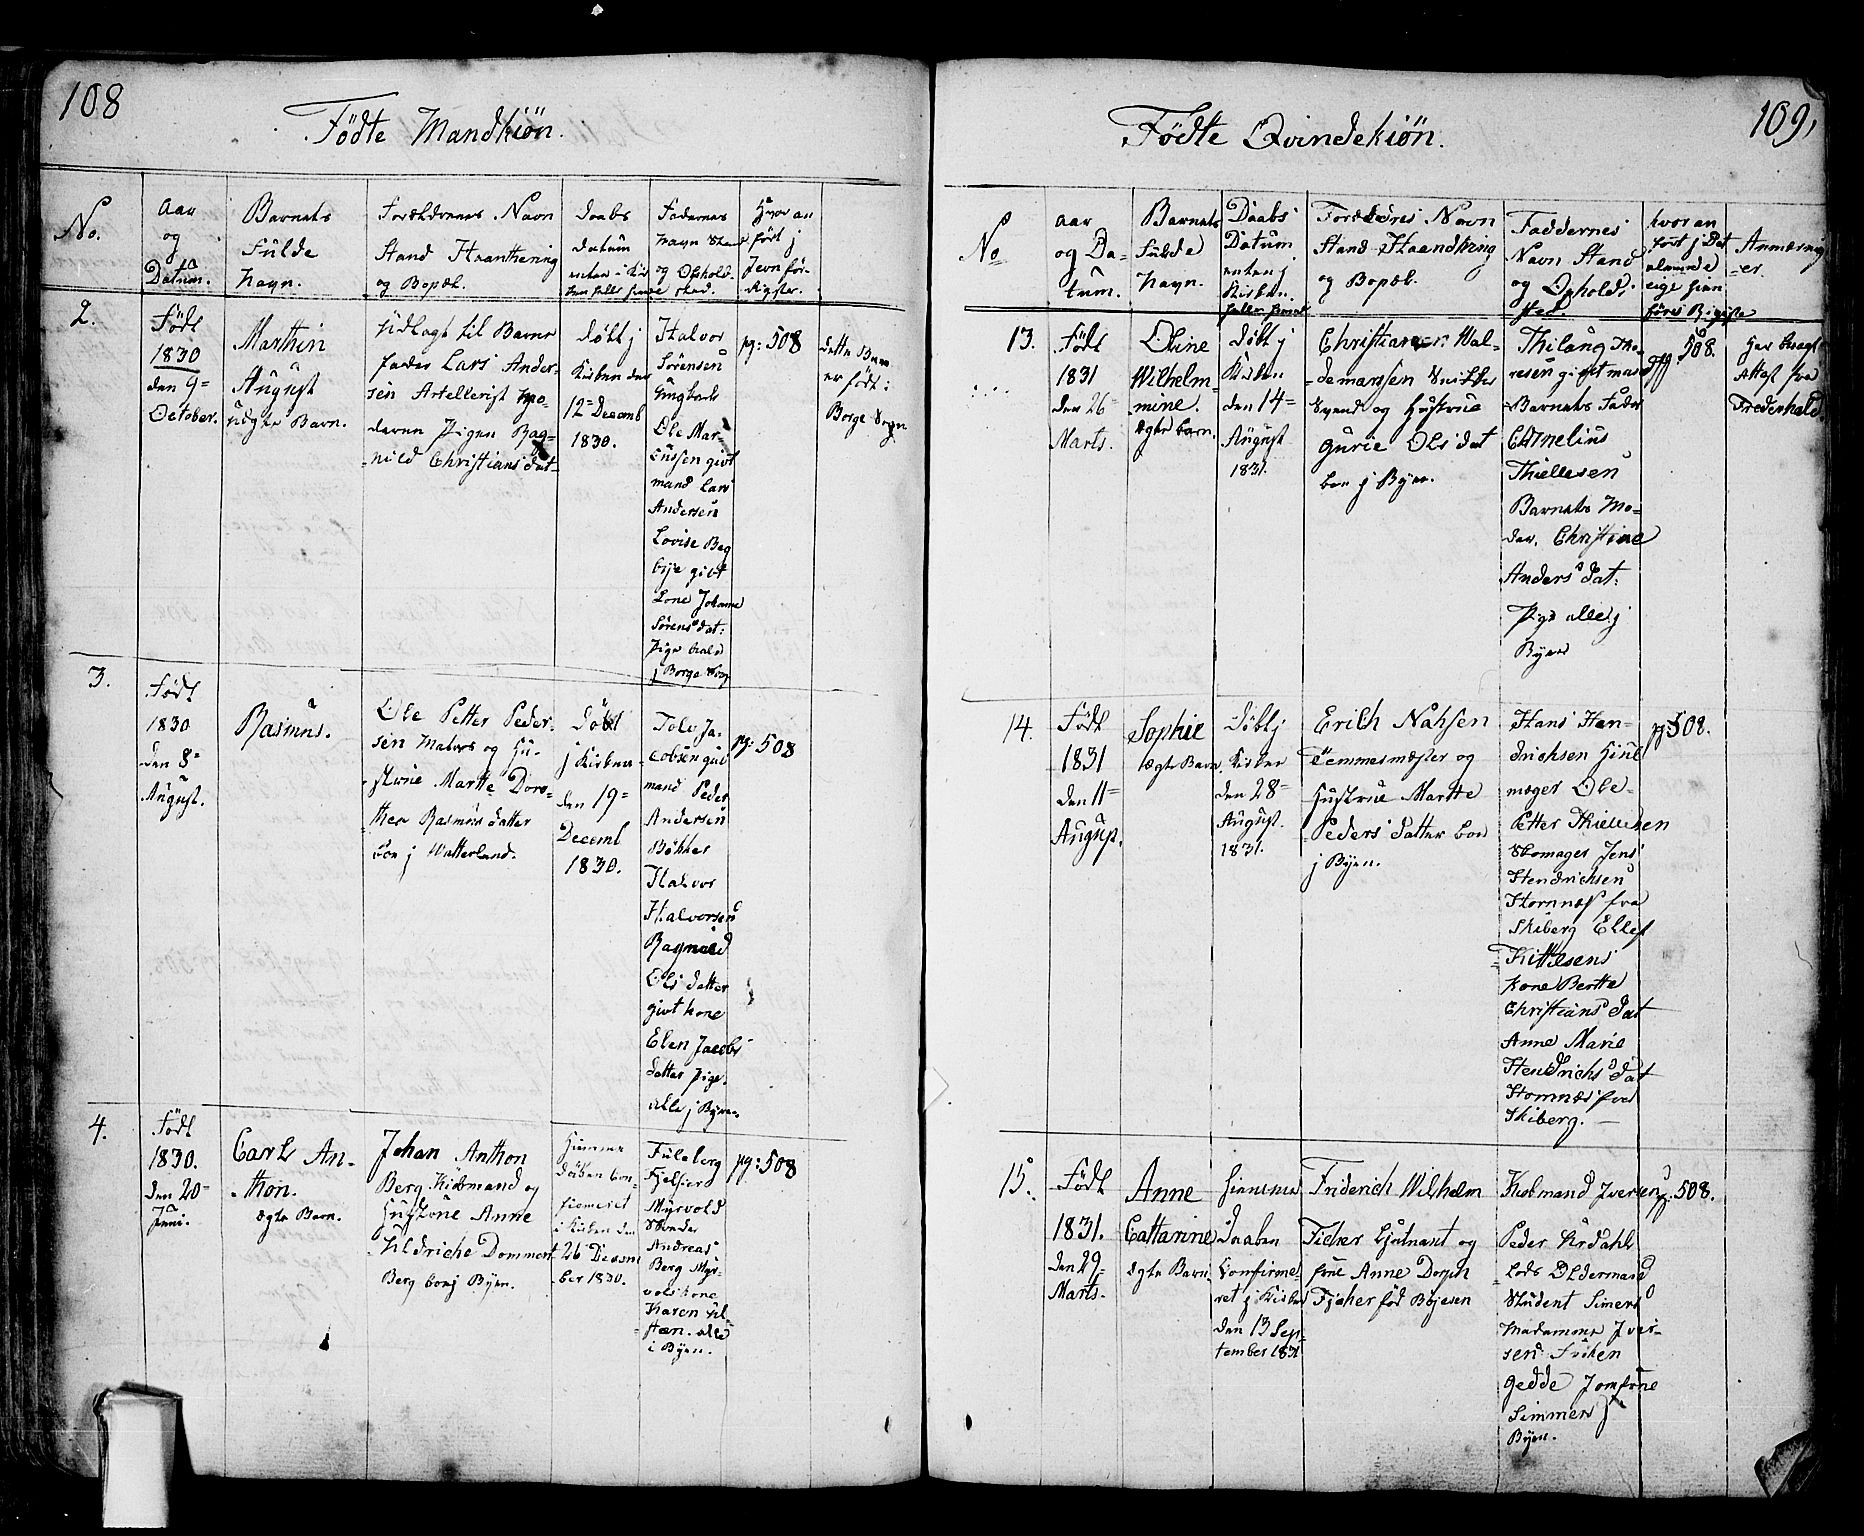 108
Födte Mandkiön.
No.
Aar
og
Datum.
Barnets
Fulde
Navn.
Forældrenes Navn
Stand Haantering
og Bopæl.
Daabs
Datum
enten i Kir
Faddernes
Navn Stand
og Ophold
sted.
Hvor an
ført j
Jevn før-
Rigster.
2.
Födt
1830
den 9=
October.
Marthin
August
uægte Barn.
Udlagt til Barne
fader Lars Ander-
sen Artellerist Mo-
deren Pigen Rag-
nild Christians dat
döbt j
Kirken den
12= Decemb
1830.
Halvor
Sörensen
Ungkarl
Ole Mar-
cussen givt
mand Lars
Andersen
Lovise Bag
givt
Lone Johanne
Sörens dat:
Pige
j Borge Sogn
pg: 508
dette Barn
er född i
Borge Sogn
3.
Födt
1830
den 8=
August.
Rasmus.
Ole Petter Peder-
sen Matros og Hu-
strue Marthe Doro-
thea Rasmus datter
boe j Watterland.
Döbt
j Kirken
den 19=
Decemb
1830.
Tolv Ja-
cobsen gift
mand Peder
Andersen
Bökker
Halvor
Halvorsen
Ragnild
Ols datter
givt kone
Elen Jacobs
datter Pige.
alle j Byen.
pg: 508
4.
Födt
1830.
den 20=
Juni.
Carl An-
thon.
ægte Barn.
Johan Anthon
Berg Kiöbmand og
Hustrue Anne
Uldriche Dommert
Berg boe j Byen.
Himme
döben con-
firmeret
i Kirken den
26= Decem
ber 1830.
Fuleberg
Myrvold
Andreas
Berg Myr-
vols kone
Karen Ul-
sten. alle
i Byen.
pg: 508
109,
Födte Qvindekiön.
No
Aar
og Da-
tum.
Barnets
Fulde
Navn.
Daabs
Datum
enten j
Kirken.
Forældres Navn
Stand Haandtering
og Bopæl.
Faddernes
Navn Stand
og Opholds
sted
hvor an
ført j Det
Anmærning
-er.
13.
Födt
1831
den 26=
Marts.
Oline
Wilhelm-
mine.
ægte barn.
döbt j
Kirken
den 14=
August
1831.
Christian Wal-
demarssen Snikker
Svend og Hustrue
Gurie Ols dat
boe j Byen.
Thilang Tho-
resen gift mand
Barnets Fader
Cornelius
Thiellesen
Barnets Mo-
der. Christine
Anders dat:
Pige alle j
Byen
pg 508.
Har bragt
Attest fra
Frederhald.
14.
Födt
1831
den 11=
August.
Sophie
ægte Barn.
Döbt j
Kirken
den 28=
August.
1831.
Erich Nahsen
Tömmermester og
Hustrue Marthe
Peders datter boe
j Byen.
Hans Hen-
drichsen Hiul
mager Ole-
Petter Thiellesen
Skomager Jens
Hendrichsen
Hornnæs fra
Skiberg Ellef
Kittelsens
Kone Berthe
Christians dat
Anne Marie
Hendrichs dat
Hornnæs fra
Skiberg.
pg 508.
15.
Födt
1831.
den 29=
Marts.
Anne
Cattarine
ægte Barn.
hiemme
Daaben
Confirme-
ret j Kirken
den 13 Sep-
tember 1831
Friderich Wilhelm
Ficher Liutnant og
frue Anne Dorph
Ficher född Böjesen
Kiebmand Iversen
Peder Urdahl
Lods Oldermand
Student Simers
Madamme Iver-
sen Friken
Gedde Jomfrue
Simmers j
Byen.
pg: 508.